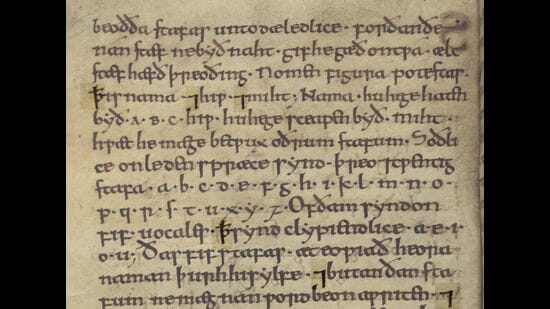 beoð ða stafas untodæledlice · forðan ðe
nan stæf ne byð naht · gif he gæð on twa · ælc
stæf hæfð þreo ðing · Nomen figura potestas ·
ꝥ is nama · ⁊ hiw · ⁊ miht ; Nama · hu he ge haten
byð · a · b · c · hiw · hu he ge sceapen byð · miht ·
hwæt he mage betwux oðrum stafum · Soðli
ce on leden spræce synd · þreo ⁊ twentig
stafa · a · b · c · d · e · f · g · h · i · k · l · m · n · o ·
p · q · r · s · t · u · x · y · z · Of ðam syndon
fif · uocales · ꝥ synd clypiendlice · a · e · i ·
o · u ; Ðas fif stafas · æteowiað heora
naman þurh hi sylfe · ⁊ butan ðan sta
fum ne mæg nan word beon awriten · ⁊